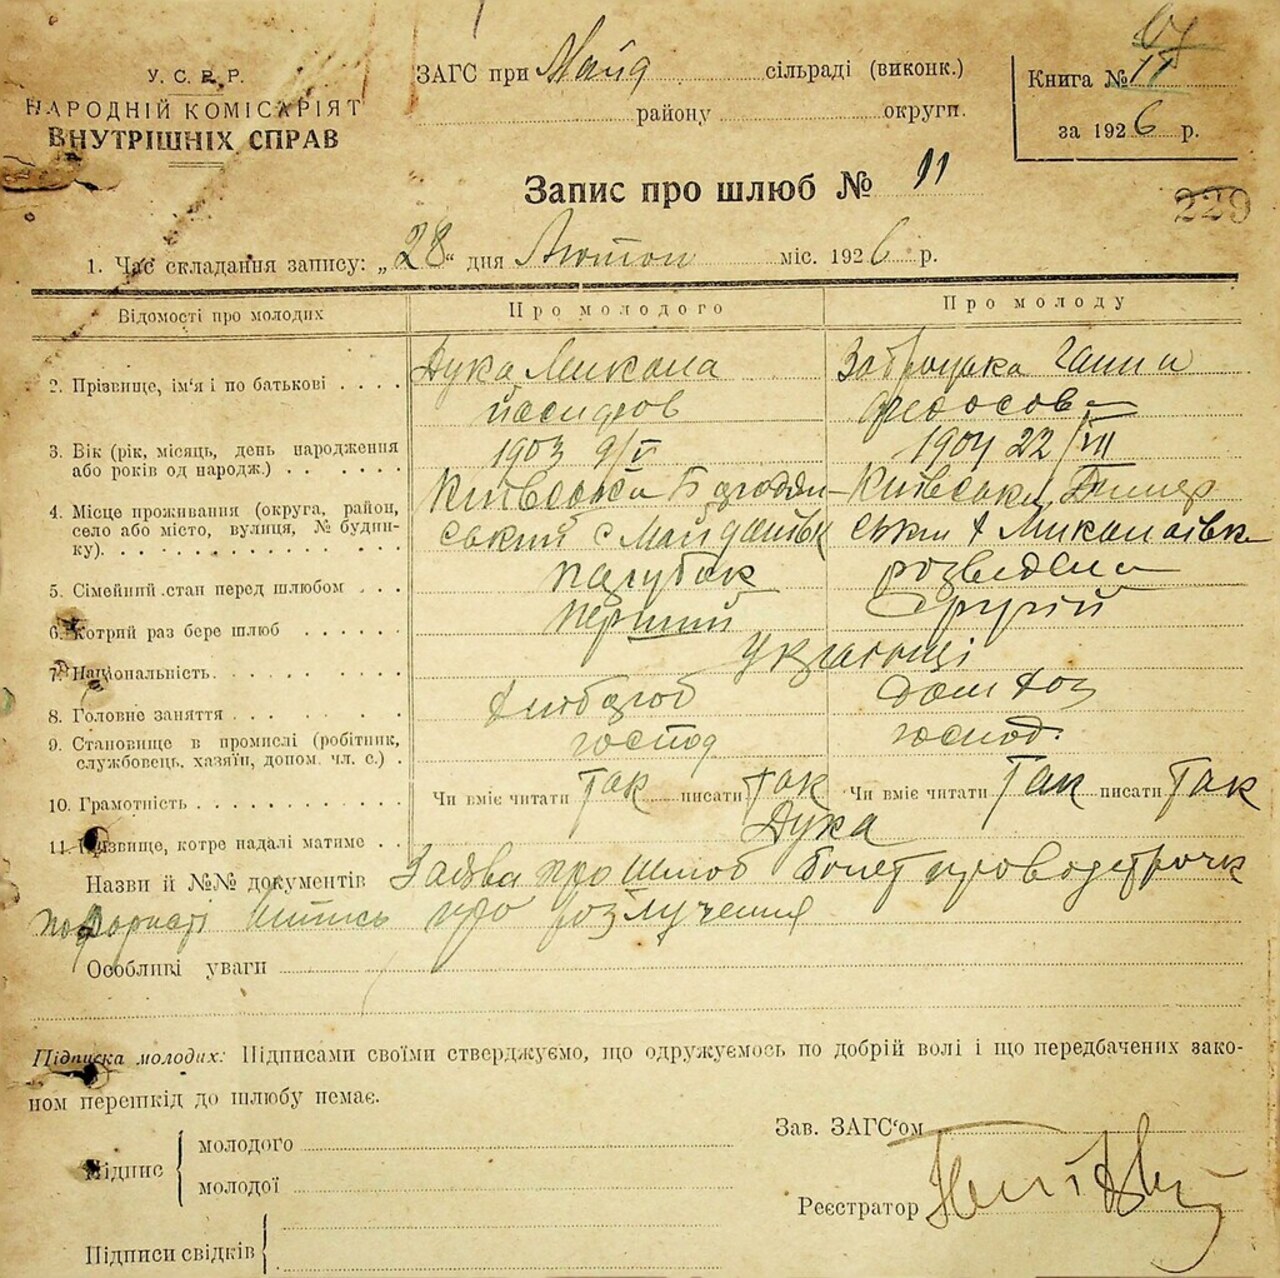 У. С. Р. Р.
НАРОДНІЙ КОМІСАРІЯТ
ВНУТРІШНІХ СПРАВ
ЗАГС при Майд сільраді (виконк.)
району округи.
Книга № 11
за 1926 р.
Запис про шлюб № 11
229
1. Час складання запису: „28“ дня Лютого міс. 1926 р.
Відомості про молодих Про молодого Про молоду
2. Прізвище, ім'я і по батькові . . . . Дука Микола Забродська Ганна
Феодосов
3. Вік (рік, місяць, день народження
або років од народж.) . . . . . . 1903 9/V 1904 22/VII
4. Місце проживання (округа, район,
село або місто, вулиця, № будин-
ку). Київська Бородян- Київська, Димер
ський с Майданівк ський с Миколаївка
5. Сімейний стан перед шлюбом . . . парубок розведена
6. Котрий раз бере шлюб . . . . . . перший другій
7. Національність. Українці
8. Головне заняття хлібороб дом хоз
9. Становище в промислі (робітник,
службовець, хазяїн, допом. чл. с.) . господ господ.
10. Грамотність Чи вміє читати Так писати так Чи вміє читати Так писати Так
11. Прізвище, котре надалі матиме . . Дука
Назви й №№ документів Заява про шлюб
про розлучення
Особливі уваги
Підписка молодих: Підписами своїми стверджуємо, що одружуємось по добрій волі і що передбачених зако-
ном перешкід до шлюбу немає.
Зав. ЗАГС'ом
Підпис { молодого
молодої
Реєстратор
Підписи свідків {